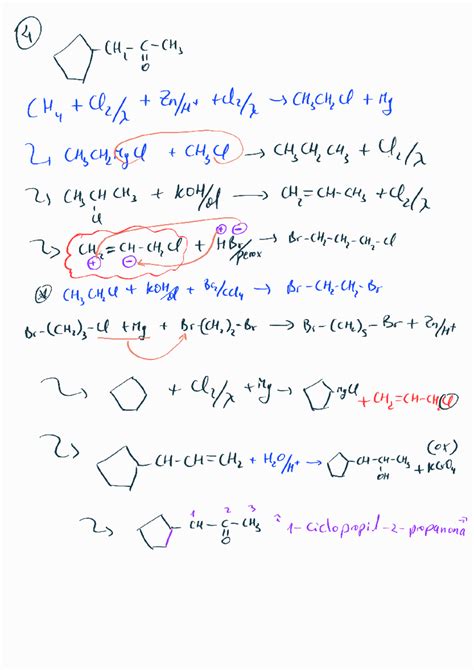 4
-CH₂-C-CH₃
O
CH₄ + Cl₂/λ + Zn/H⁺ + Cl₂/λ → CH₃CH₂Cl + Mg
CH₃CH₂MgCl + CH₃Cl → CH₃CH₂CH₃ + Cl₂/λ
CH₃CHCH₃ + KOH/ol → CH₂=CH-CH₃ + Cl₂/λ
Cl
⊕ ⊖
CH₂=CH-CH₂Cl + HBr/perox → Br-CH₂-CH₂-CH₂-Cl
⊕ ⊖
CH₃CH₂Cl + KOH/ol + Br₂/CCl₄ → Br-CH₂-CH₂-Br
Br-(CH₂)₃-Cl + Mg + Br-(CH₂)₂-Br → Br-(CH₂)₅-Br + Zn/H⁺
+ Cl₂/λ + Mg → MgCl
+ CH₂=CH-CH₂Cl
-CH-CH=CH₂ + H₂O/H⁺ → -CH-CH-CH₃ (ox)
OH + KCrO₄
1 2 3
-CH-C-CH₃ "1-ciclopropil-2-propanona"
O